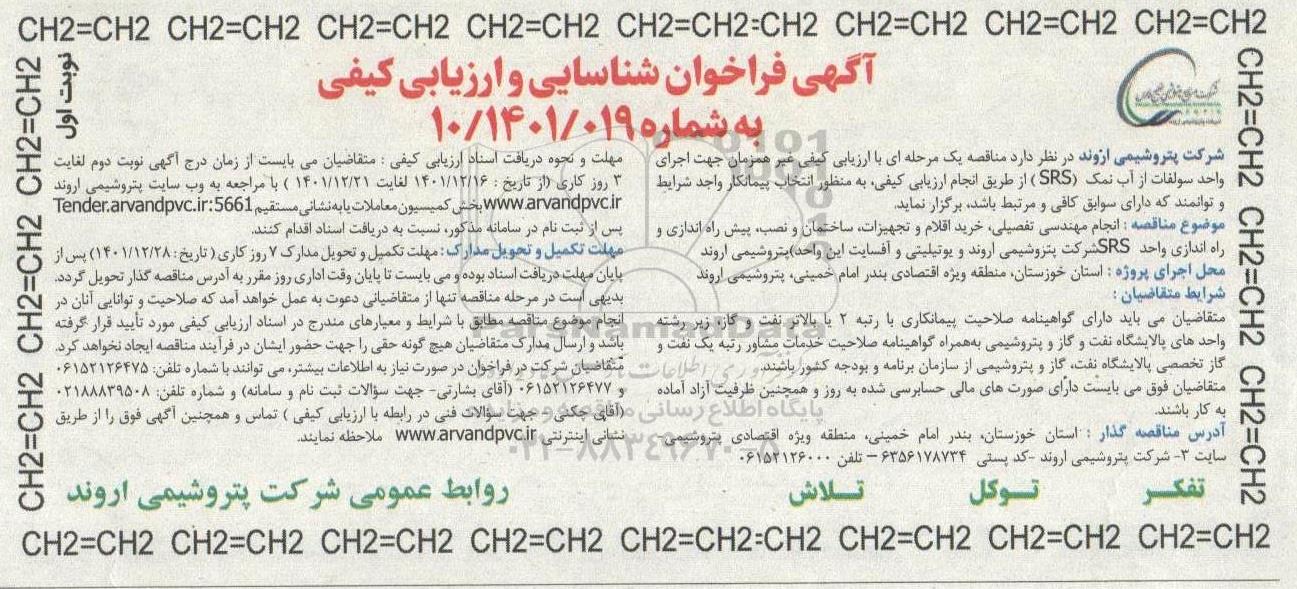 CH2=CH2 CH2=CH2 CH2=CH2 CH2=CH2 CH2=CH2:CH2 CH2=CH2 CH2=CH2 CH2=CH2
نوبت اول
آگهی فراخوان شناسایی و ارزیابی کیفی
به شماره ۱۰/۱۴۰۱/۰۱۹
شرکت پتروشیمی اروند در نظر دارد مناقصه یک مرحله ای با ارزیابی کیفی غیر همزمان جهت اجرای
واحد سولفات از آب نمک (SRS) از طریق انجام ارزیابی کیفی، به منظور انتخاب پیمانکار واجد شرایط
و توانمند که دارای سوابق کافی و مرتبط باشد، برگزار نماید.
موضوع مناقصه : انجام مهندسی تفصیلی، خرید اقلام و تجهیزات، ساختمان و نصب، پیش راه اندازی و
راه اندازی واحد SRS شرکت پتروشیمی اروند و یوتیلیتی و آفسایت این واحد)پتروشیمی اروند
محل اجرای پروژه : استان خوزستان، منطقه ویژه اقتصادی بندر امام خمینی، پتروشیمی اروند
شرایط متقاضیان :
متقاضیان می باید دارای گواهینامه صلاحیت پیمانکاری با رتبه ۲ یا بالاتر نفت و گاز، زیر رشته
واحد های پالایشگاه نفت و گاز و پتروشیمی به‌همراه گواهینامه صلاحیت خدمات مشاور رتبه یک نفت و
گاز تخصصی پالایشگاه نفت، گاز و پتروشیمی از سازمان برنامه و بودجه کشور باشند.
متقاضیان فوق می بایست دارای صورت های مالی حسابرسی شده به روز و همچنین ظرفیت آزاد آماده
به کار باشند.
آدرس مناقصه گذار : استان خوزستان، بندر امام خمینی، منطقه ویژه اقتصادی پتروشیمی
سایت ۳- شرکت پتروشیمی اروند -کد پستی ۶۳۵۶۱۷۸۷۳۴ – تلفن ۰۶۱۵۲۱۲۶۰۰۰
مهلت و نحوه دریافت اسناد ارزیابی کیفی : متقاضیان می بایست از زمان درج آگهی نوبت دوم لغایت
۳ روز کاری (از تاریخ : ۱۴۰۱/۱۲/۱۶ لغایت ۱۴۰۱/۱۲/۲۱ ) با مراجعه به وب سایت پتروشیمی اروند
www.arvandpvc.ir بخش کمیسیون معاملات یا به نشانی مستقیم Tender.arvandpvc.ir:5661
پس از ثبت نام در سامانه مذکور، نسبت به دریافت اسناد اقدام کنند.
مهلت تکمیل و تحویل مدارک: مهلت تکمیل و تحویل مدارک ۷ روز کاری ( تاریخ: ۱۴۰۱/۱۲/۲۸) پس از
پایان مهلت دریافت اسناد بوده و می بایست تا پایان وقت اداری روز مقرر به آدرس مناقصه گذار تحویل گردد.
بدیهی است در مرحله مناقصه تنها از متقاضیانی دعوت به عمل خواهد آمد که صلاحیت و توانایی آنان در
انجام موضوع مناقصه مطابق با شرایط و معیارهای مندرج در اسناد ارزیابی کیفی مورد تأیید قرار گرفته
باشد و ارسال مدارک متقاضیان هیچ گونه حقی را جهت حضور ایشان در فرآیند مناقصه ایجاد نخواهد کرد.
متقاضیان شرکت در فراخوان در صورت نیاز به اطلاعات بیشتر، می توانند با شماره تلفن: ۰۶۱۵۲۱۲۶۴۷۵
و ۰۶۱۵۲۱۲۶۴۷۷ (آقای بشارتی- جهت سؤالات ثبت نام و سامانه) و شماره تلفن: ۰۲۱۸۸۸۳۹۵۰۸
(آقای چکنی - جهت سؤالات فنی در رابطه با ارزیابی کیفی ) تماس و همچنین آگهی فوق را از طریق
نشانی اینترنتی www.arvandpvc.ir ملاحظه نمایند.
تفکر توکل تلاش
روابط عمومی شرکت پتروشیمی اروند
CH2=CH2 CH2=CH2 CH2=CH2
CH2=CH2 CH2=CH2 CH2=CH2
CH2=CH2 CH2=CH2 CH2=CH2 CH2=CH2 CH2=CH2:CH2 CH2=CH2 CH2=CH2 CH2=CH2
ParsNamadData
پایگاه اطلاع رسانی مناقصه و مزایده
۰۲۱-۸۸۳۴۹۶۷۰